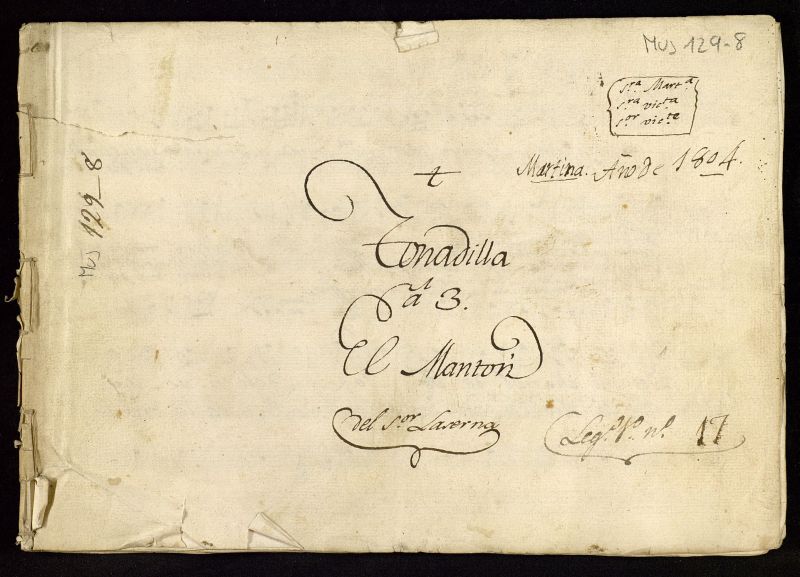 MUS 129-8
Sra. Marta.
Sra. victa
sor. victe
Martina. Año de 1804.
Tonadilla
a 3.
El Mantón
del Sor. Laserna
Lego. 1o. no. 17
MUS 129_8